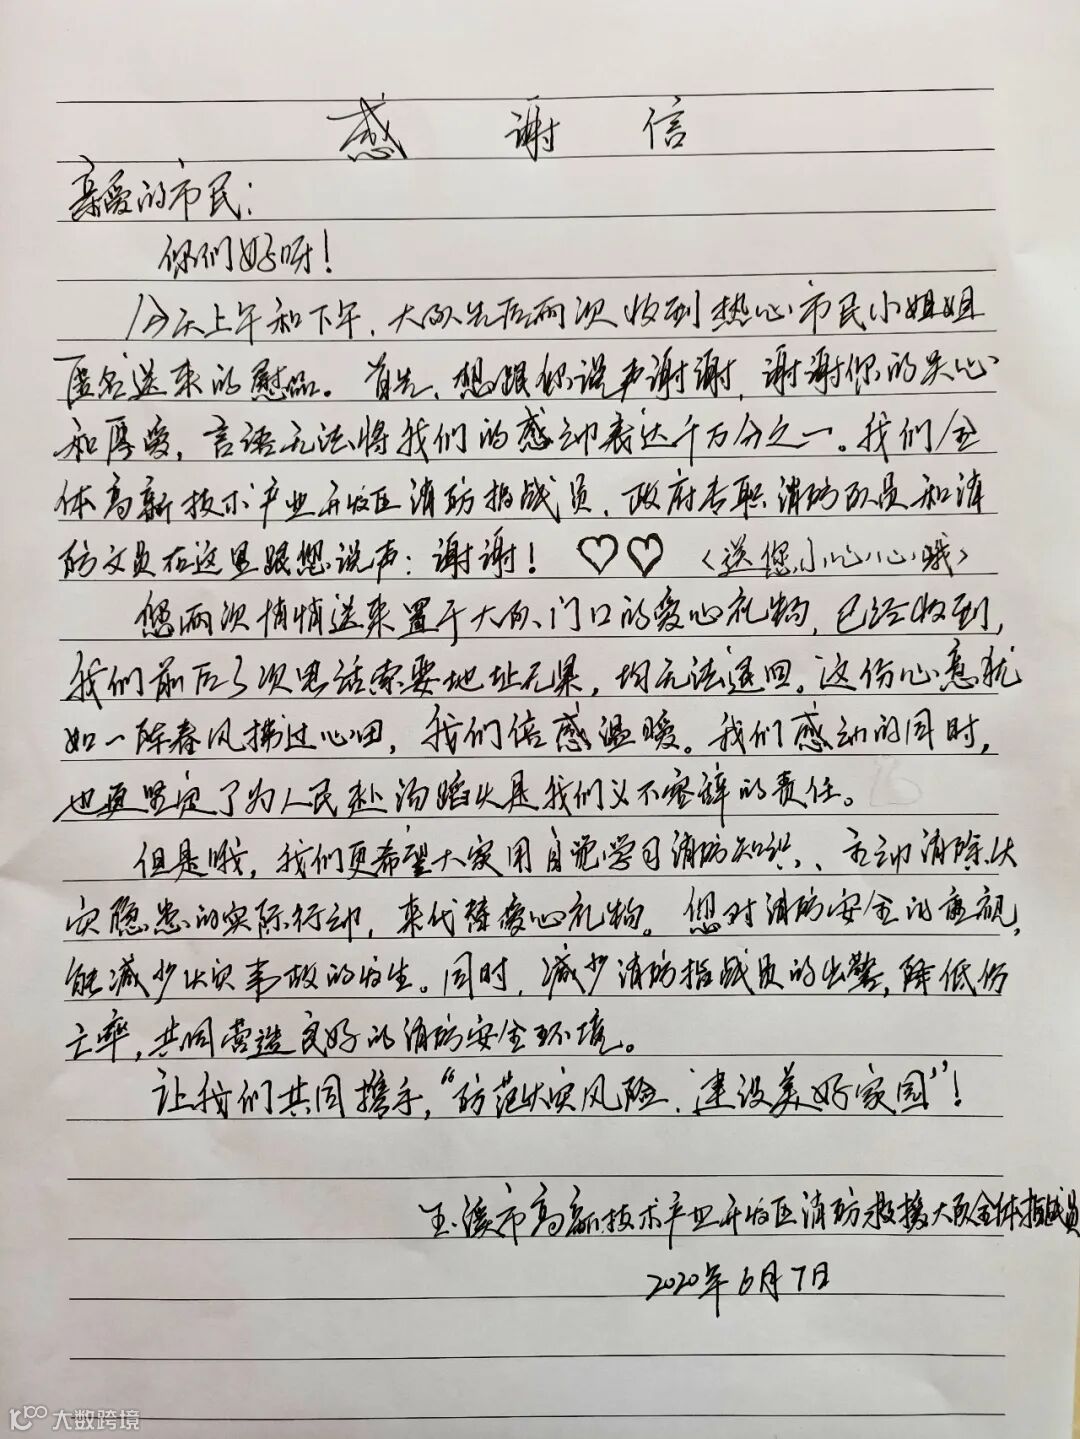 感谢信
亲爱的市民:
你们好呀!
今天上午和下午,大队先后两次收到热心市民小姐姐
匿名送来的慰品。首先,想跟你说声谢谢,谢谢你的关心
和厚爱,言语无法将我们的感动表达千万分之一。我们全
体高新技术产业开发区消防指战员、政府专职消防队员和消
防文员在这里跟您说声:谢谢!♡♡(送您小心心哦)
您两次悄悄送来置于大队门口的爱心礼物,已经收到,
我们前后3次电话索要地址无果,均无法退回。这份心意就
如一阵春风拂过心田,我们倍感温暖。我们感动的同时,
也更坚定了为人民赴汤蹈火是我们义不容辞的责任。
但是哦,我们更希望大家用自觉学习消防知识、主动消除火
灾隐患的实际行动,来代替爱心礼物。您对消防安全的重视,
能减少火灾事故的发生。同时,减少消防指战员的出警,降低伤
亡率,共同营造良好的消防安全环境。
让我们共同携手,“防范火灾风险,建设美好家园”!
玉溪市高新技术产业开发区消防救援大队全体指战员
2020年6月7日
大数跨境